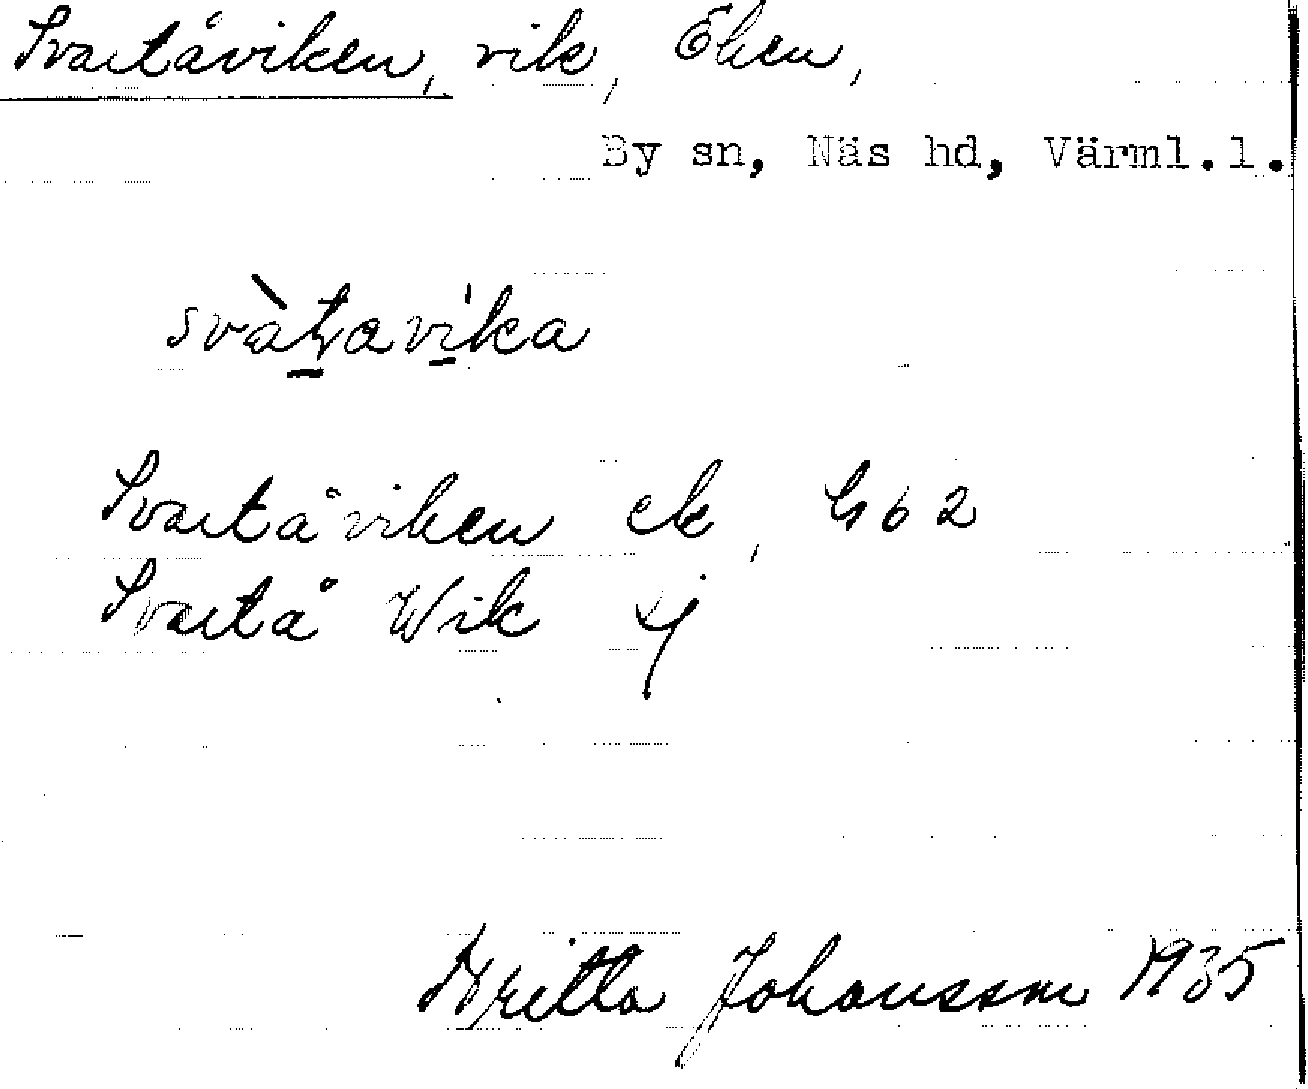 Svartåviken, vik, Eken,
By sn, Näs hd, Värml.l.
svàtavika
Svartåviken ek, G62
Svartå Wik
Britta Johansson 1935